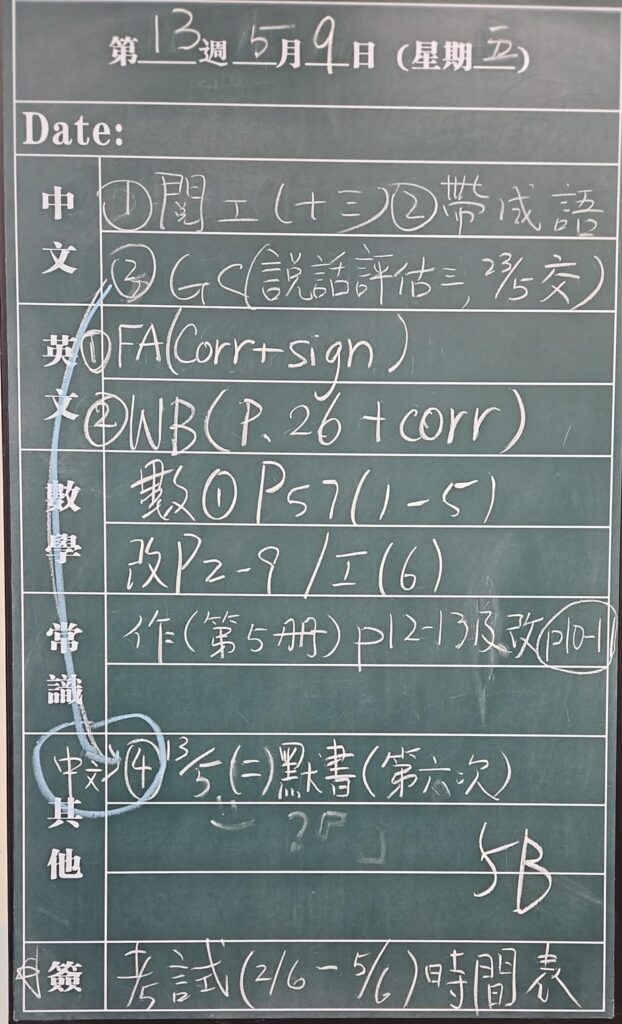 第13週5月9日(星期五)
Date:
中文
①閱工(十三)②帶成語
③GC(説話評估三,23/5交)
英文
①FA(Corr+sign)
②WB(P.26+corr)
數學
數①P57(1-5)
改P2-9/工(6)
常識
作(第5册)p12-13及改p10-11
其他
中文④13/5(二)默書(第六次)
5B
簽
考試(2/6-5/6)時間表